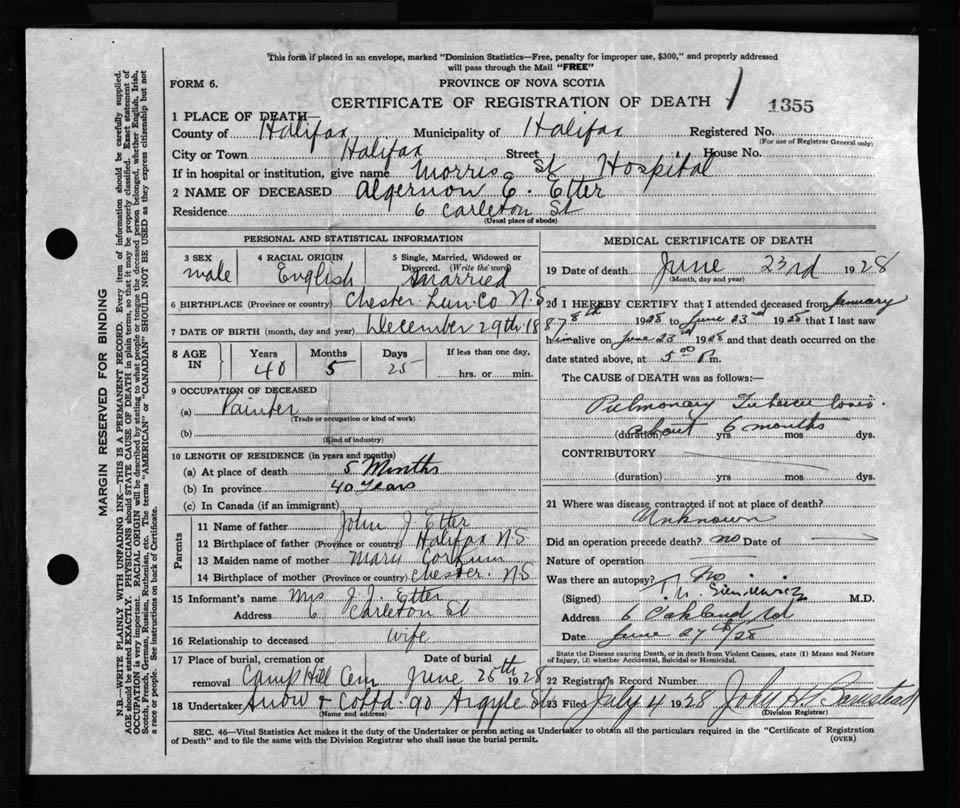 This form if placed in an envelope, marked "Dominion Statistics—Free, penalty for improper use, $300," and properly addressed
will pass through the Mail "FREE"
FORM 6.
PROVINCE OF NOVA SCOTIA
CERTIFICATE OF REGISTRATION OF DEATH 1 1355
1 PLACE OF DEATH—
County of Halifax Municipality of Halifax Registered No.
(For use of Registrar General only)
City or Town Halifax Street House No.
If in hospital or institution, give name Morris St Hospital
2 NAME OF DECEASED Algernon E. Etter
Residence 6 Carleton St
(Usual place of abode)
PERSONAL AND STATISTICAL INFORMATION
3 SEX 4 RACIAL ORIGIN 5 Single, Married, Widowed or
Divorced. (Write the word)
male English Married
6 BIRTHPLACE (Province or country) Chester Lun. Co N.S
7 DATE OF BIRTH (month, day and year) December 29th 1887
8 AGE IN Years Months Days If less than one day,
40 5 25 hrs. or min.
9 OCCUPATION OF DECEASED
(a) Painter
(Trade or occupation or kind of work)
(b)
(Kind of industry)
10 LENGTH OF RESIDENCE (in years and months)
(a) At place of death 5 Months
(b) In province 40 Years
(c) In Canada (if an immigrant)
Parents
11 Name of father John J. Etter
12 Birthplace of father (Province or country) Halifax N.S
13 Maiden name of mother Mary Corkum
14 Birthplace of mother (Province or country) Chester. N.S
15 Informant's name Mrs J. J. Etter
Address 6 Carleton St
16 Relationship to deceased Wife
17 Place of burial, cremation or Date of burial
removal Camp Hill Cem June 25th 1928
18 Undertaker Snow & Co Ltd. 90 Argyle St
(Name and address)
MEDICAL CERTIFICATE OF DEATH
19 Date of death June 23rd 1928
(Month, day and year)
20 I HEREBY CERTIFY that I attended deceased from January
8th 1928 to June 23rd 1928 that I last saw
him alive on June 23rd 1928 and that death occurred on the
date stated above, at 5 00 P.m.
The CAUSE of DEATH was as follows:—
Pulmonary Tuberculosis.
(duration) about 6 months yrs mos dys.
CONTRIBUTORY
(duration) yrs mos dys.
21 Where was disease contracted if not at place of death?
Unknown
Did an operation precede death? no Date of
Nature of operation
Was there an autopsy? No
(Signed) M.D.
Address 6 Oakland Rd
Date June 27th/28
State the Disease causing Death, or in death from Violent Causes, state (1) Means and Nature
of Injury, (2) whether Accidental, Suicidal or Homicidal.
22 Registrar's Record Number
23 Filed July 4 1928 John H. Barnstead
(Division Registrar)
SEC. 46—Vital Statistics Act makes it the duty of the Undertaker or person acting as Undertaker to obtain all the particulars required in the "Certificate of Registration
of Death" and to file the same with the Division Registrar who shall issue the burial permit.
(OVER)
MARGIN RESERVED FOR BINDING
N.B.—WRITE PLAINLY WITH UNFADING INK—THIS IS A PERMANENT RECORD. Every item of information should be carefully supplied.
AGE should be stated EXACTLY. PHYSICIANS should STATE CAUSE OF DEATH in plain terms, so that it may be properly classified. Exact statement of
OCCUPATION is very important. RACIAL ORIGIN will be described by stating to what people or tongue the deceased person belonged, whether English, Irish,
Scotch, French, German, Russian, Ruthenian, etc. The terms "AMERICAN" or "CANADIAN" SHOULD NOT BE USED as they express citizenship but not
a race or people. See instructions on back of Certificate.